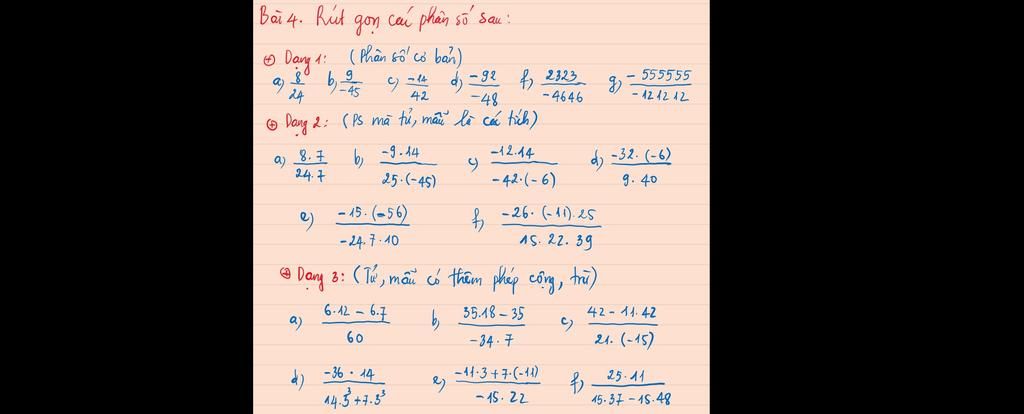 Bài 4. Rút gọn các phân số sau:
⊕ Dạng 1: (Phân số cơ bản)
a) 8/24 b) 9/-45 c) -14/42 d) -92/-48 f) 2323/-4646 g) -555555/-121212
⊕ Dạng 2: (PS mà tử, mẫu là các tích)
a) 8.7/24.7 b) -9.14/25.(-45) c) -12.14/-42.(-6) d) -32.(-6)/9.40
e) -15.(-56)/-24.7.10 f) -26.(-11).25/15.22.39
⊕ Dạng 3: (Tử, mẫu có thêm phép cộng, trừ)
a) 6.12 - 6.7/60 b) 35.18 - 35/-34.7 c) 42 - 11.42/21.(-15)
d) -36.14/14.3³+7.3³ e) -11.3+7.(-11)/-15.22 f) 25.11/15.37-15.48